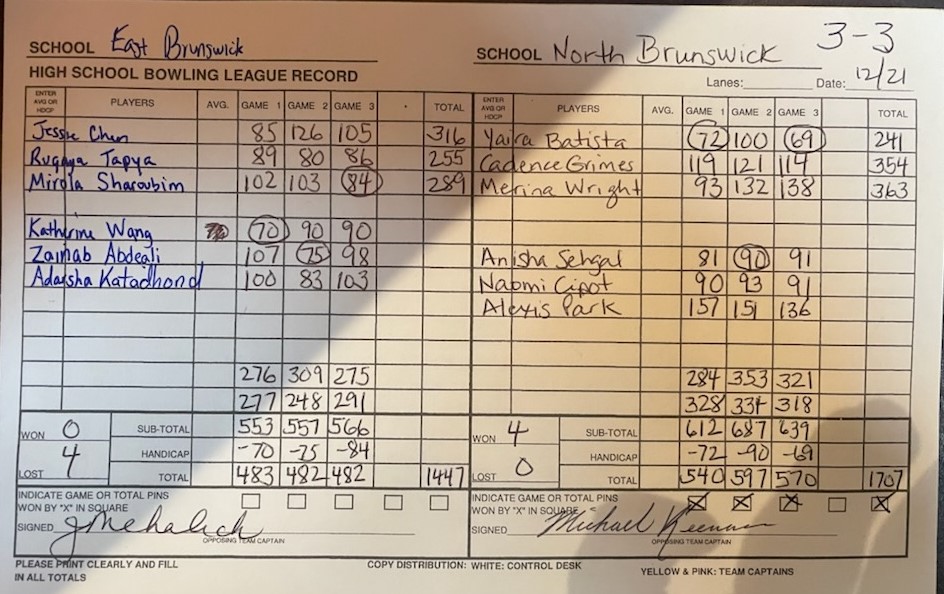 3-3
SCHOOL East Brunswick SCHOOL North Brunswick
HIGH SCHOOL BOWLING LEAGUE RECORD Lanes: Date: 12/21
ENTER AVG OR HDCP PLAYERS AVG. GAME 1 GAME 2 GAME 3 TOTAL ENTER AVG OR HDCP PLAYERS AVG. GAME 1 GAME 2 GAME 3 TOTAL
Jessie Chen 85 126 105 316 Yaira Batista 72 100 69 241
Ruqaya Tapya 89 80 86 255 Cadence Grimes 119 121 114 354
Mirola Sharoubim 102 103 84 289 Merina Wright 93 132 138 363
Katherine Wang 70 90 90
Zainab Abdeali 107 75 98 Anisha Sehgal 81 90 91
Adarsha Katadhond 100 83 103 Naomi Cipot 90 93 91
Alexis Park 157 151 136
276 309 275 284 353 321
277 248 291 328 334 318
WON 0 SUB-TOTAL 553 557 566 WON 4 SUB-TOTAL 612 687 639
HANDICAP -70 -75 -84 HANDICAP -72 -90 -69
LOST 4 TOTAL 483 482 482 1447 LOST 0 TOTAL 540 597 570 1707
INDICATE GAME OR TOTAL PINS INDICATE GAME OR TOTAL PINS
WON BY "X" IN SQUARE WON BY "X" IN SQUARE X X X X
SIGNED J Mehalick SIGNED Michael Keenan
OPPOSING TEAM CAPTAIN OPPOSING TEAM CAPTAIN
PLEASE PRINT CLEARLY AND FILL COPY DISTRIBUTION: WHITE: CONTROL DESK YELLOW & PINK: TEAM CAPTAINS
IN ALL TOTALS